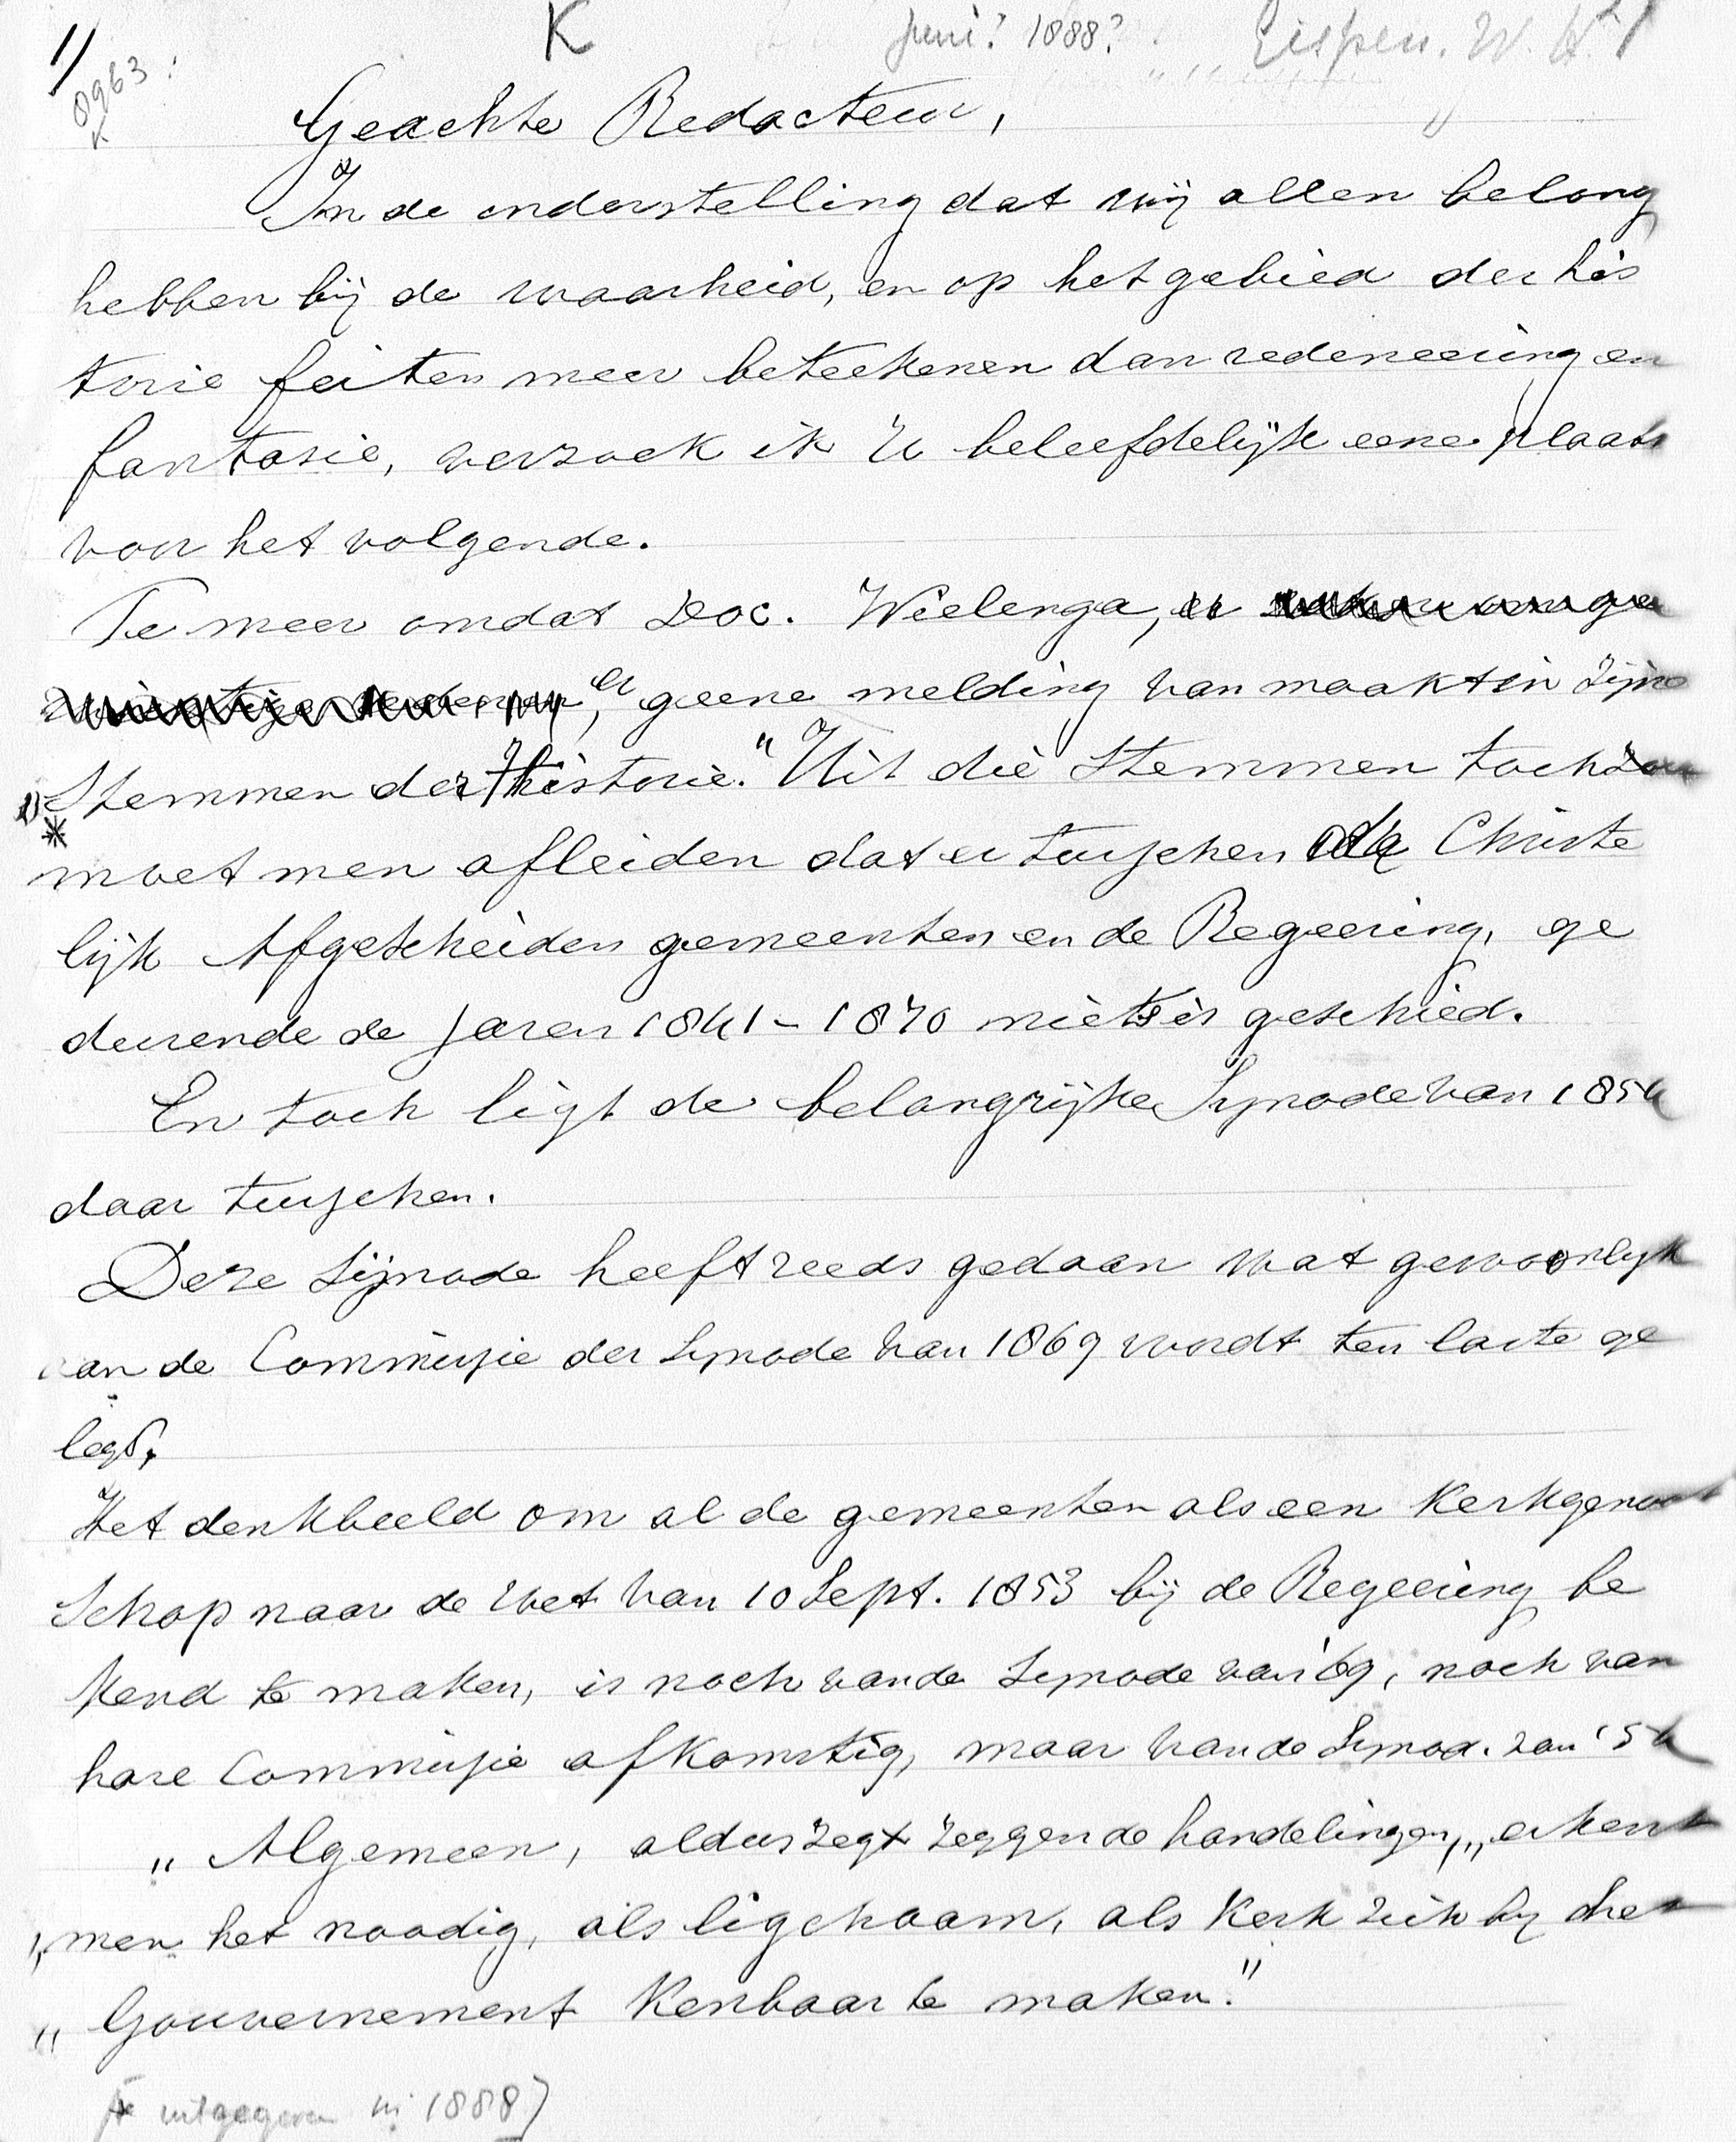 1/ K Juni? 1888? Eispen. W. H.
0963
K
Geachte Redacteur,
In de onderstelling dat wij allen belang
hebben bij de waarheid, en op het gebied der his
torie feiten meer beteekenen dan redeneering en
fantasie, verzoek ik U beleefdelijk eene plaats
voor het volgende.
Te meer omdat Doc. Wielenga, er
er geene melding van maakt in zijne
„Stemmen der Historie." Uit die Stemmen toch
* moet men afleiden dat er tusschen de Christe
lijk Afgescheiden gemeenten en de Regeering, ge
durende de jaren 1841-1870 niets is geschied.
En toch ligt de belangrijke Synode van 1854
daar tusschen.
Deze Sijnode heeft reeds gedaan wat gewoonlijk
aan de Commissie der Synode van 1869 wordt ten laste ge
legd.
Het denkbeeld om al de gemeenten als een Kerkgenoot
schap naar de Wet van 10 Sept. 1853 bij de Regeering be
kend te maken, is noch van de Synode van '69, noch van
hare Commissie afkomstig, maar van de Synod. van '54
„Algemeen, aldus zegt zeggen de handelingen, „erkent
„men het noodig, als ligchaam, als Kerk zich by het
„Gouvernement kenbaar te maken."
[* uitgegeven in 1888]